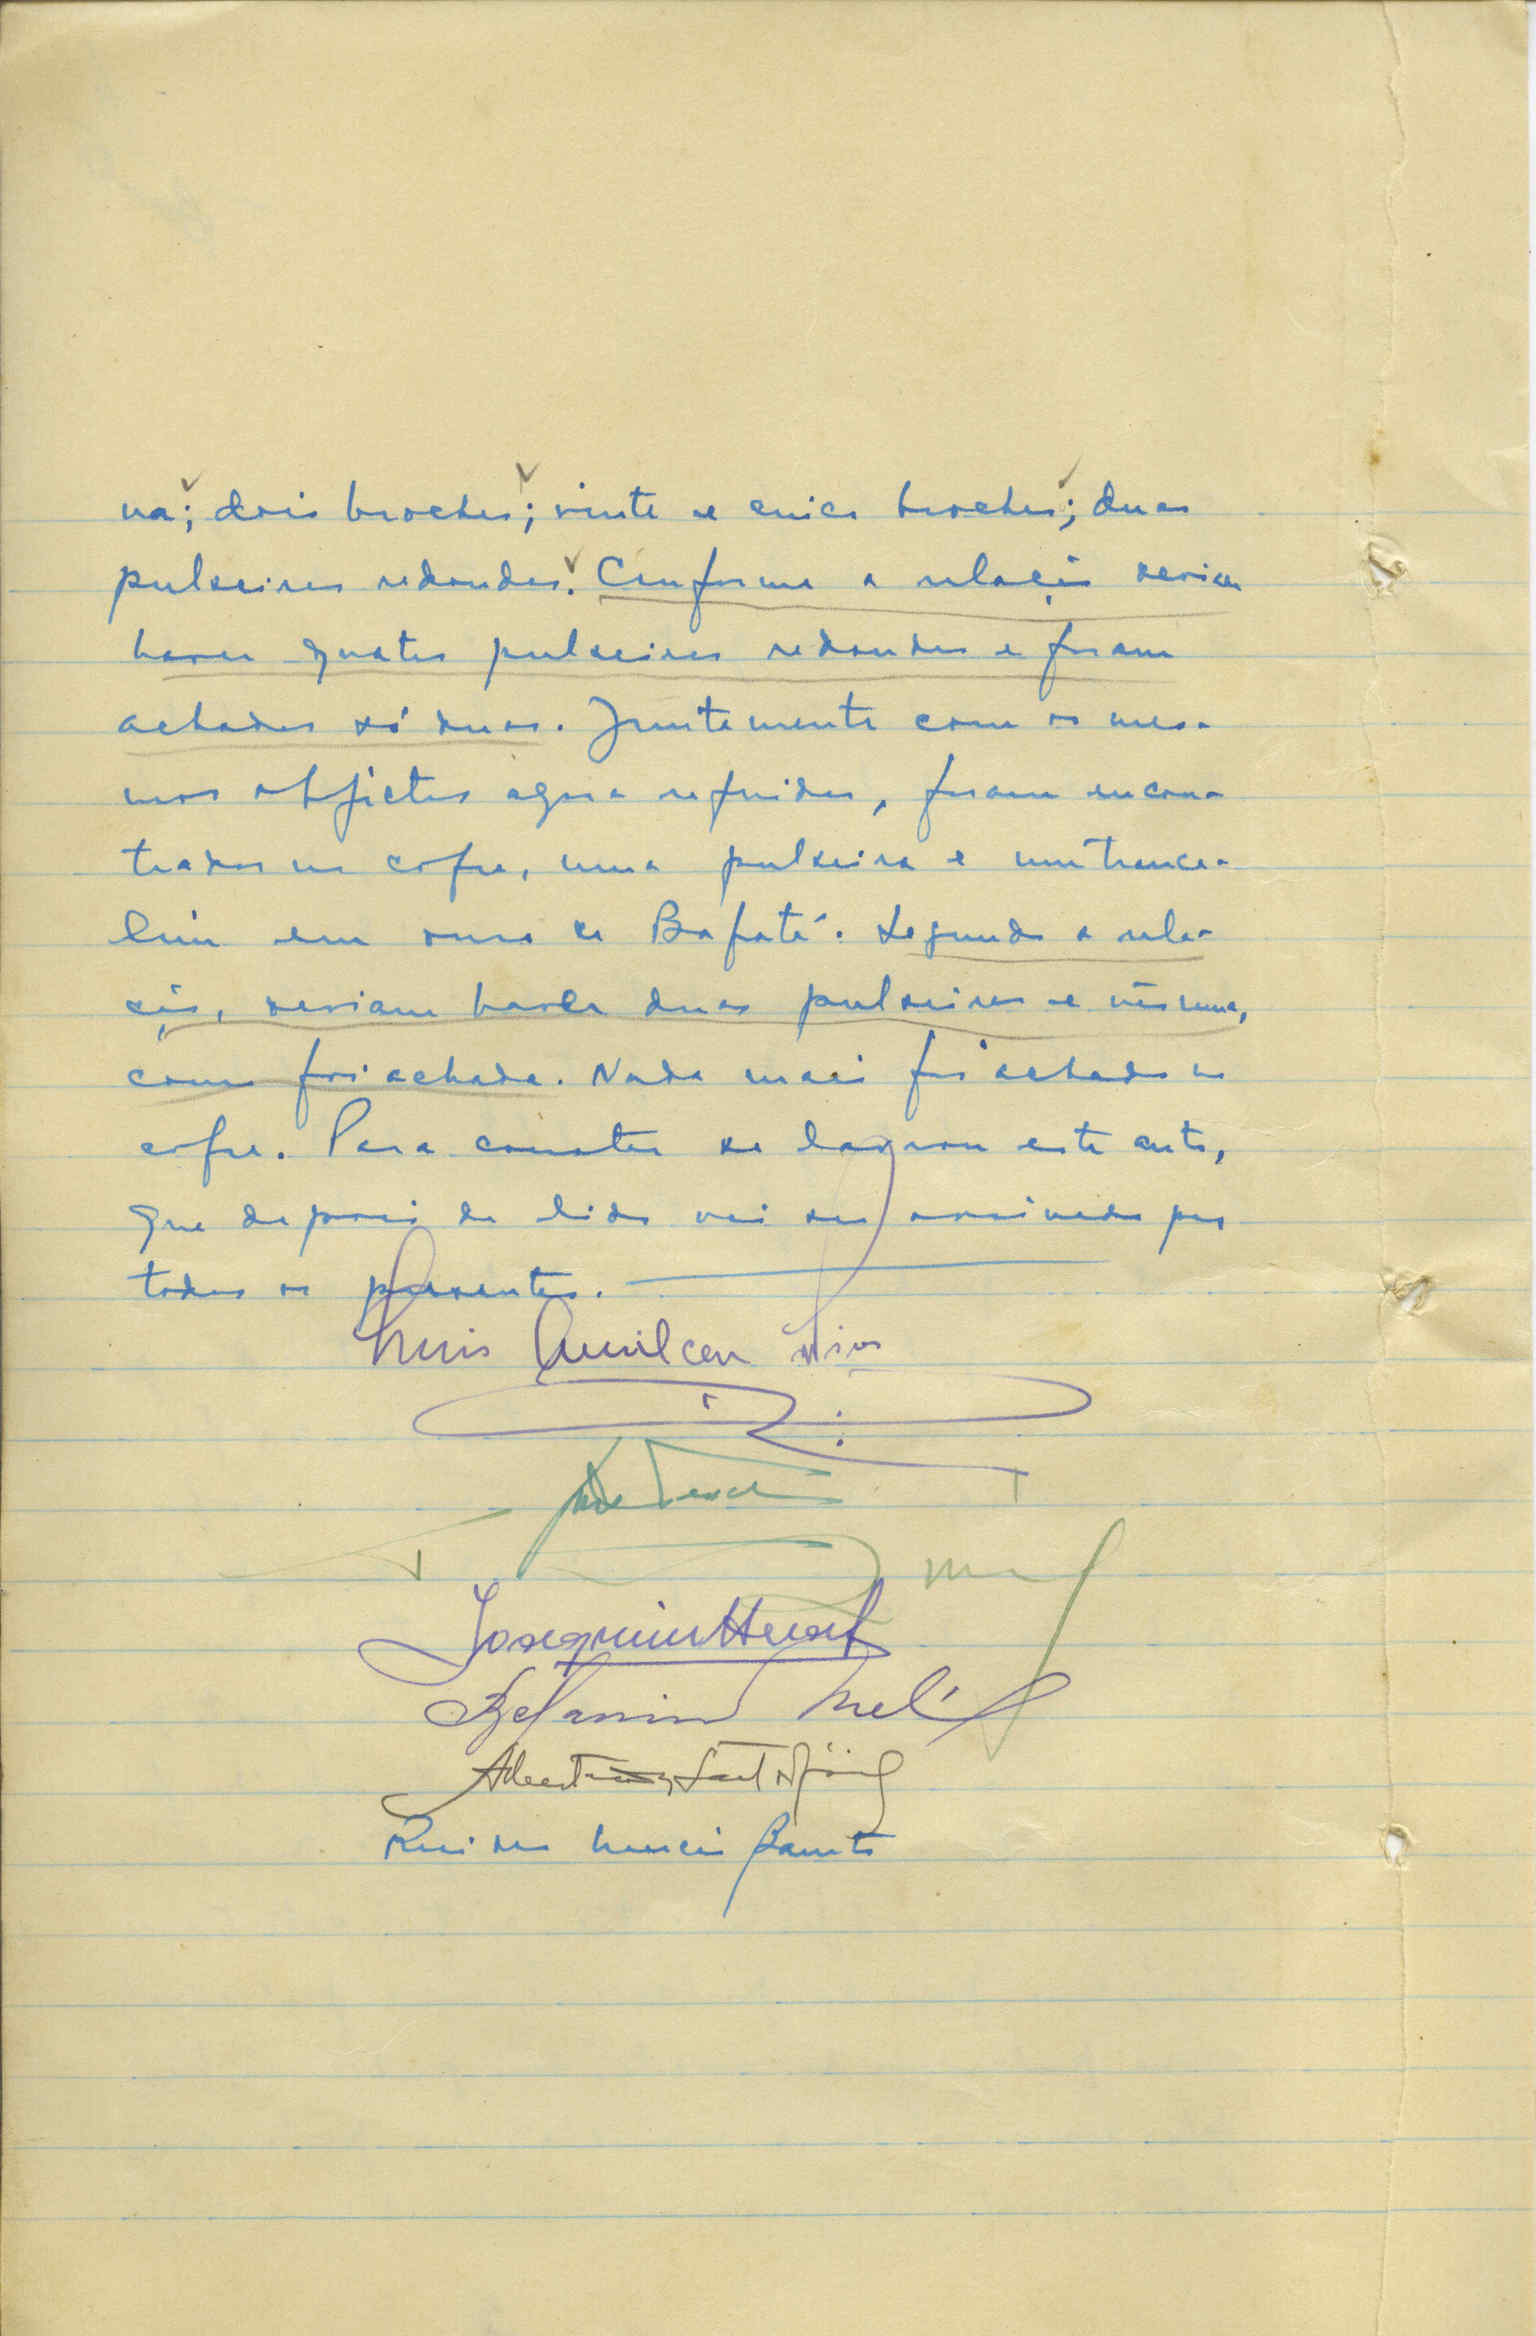 na; dois broches; vinte e cinco broches; duas
pulseiras redondas. Conforme a relação deviam
haver quatro pulseiras redondas e foram
achadas só duas. Juntamente com os mes-
mos objectos agora referidos, foram encon-
trados no cofre, uma pulseira e um trance-
lim em ouro de Bafatá. Segundo a rela-
ção, deviam haver duas pulseiras e não uma,
como foi achada. Nada mais foi achado no
cofre. Para constar se lavrou este auto,
que depois de lido vai ser assinado por
todos os presentes.
Luis
Joaquim
Benjamim
Rui